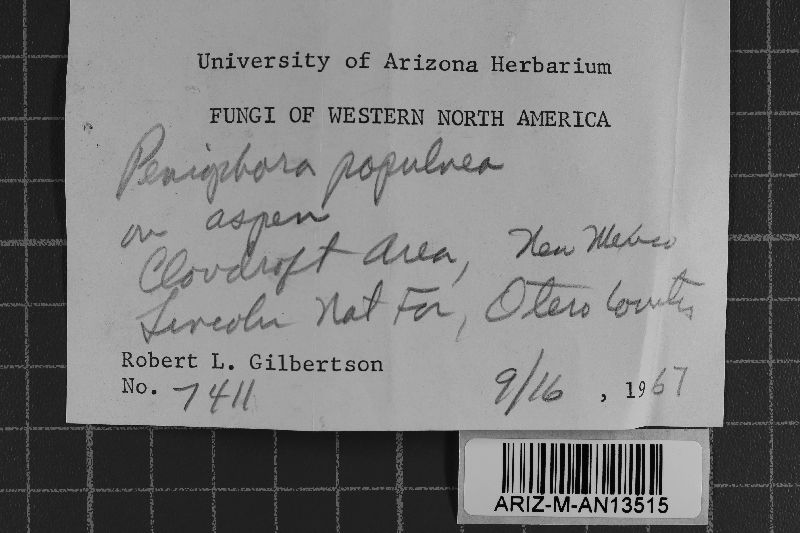 University of Arizona Herbarium
FUNGI OF WESTERN NORTH AMERICA
Peniophora populnea
on aspen
Cloudcroft Area, New Mexico
Lincoln Nat For, Otero County
Robert L. Gilbertson
No. 7411 9/16, 1967
ARIZ-M-AN13515